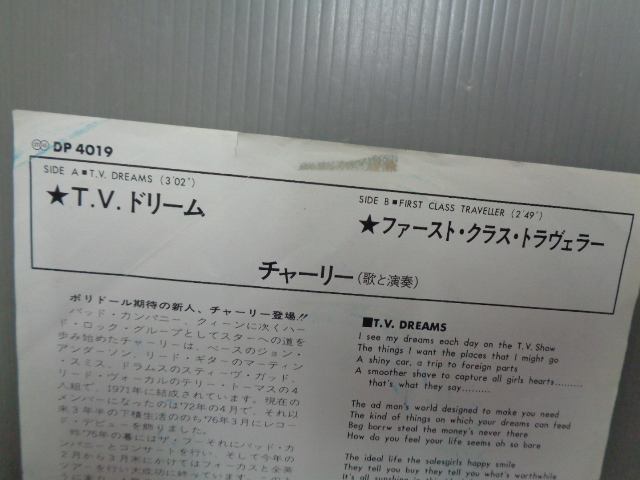 DP 4019
SIDE A■T.V. DREAMS (3'02")
★T.V.ドリーム
SIDE B■FIRST CLASS TRAVELLER (2'49")
★ファースト・クラス・トラヴェラー
チャーリー(歌と演奏)
ポリドール期待の新人、チャーリー登場!!
バッド・カンパニー、クィーンに次ぐハー
ド・ロック・グループとしてスターへの道を
歩み始めたチャーリーは、ベースのジョン・
アンダーソン、リード・ギターのマーティン
・スミス、ドラムスのスティーヴ・ガッド、
リード・ヴォーカルのテリー・トーマスの4
人組で、1971年に結成されています。現在の
メンバーになったのは'72年の4月で、それ以
来3年半の下積生活ののち'76年3月にレコー
ド・デビューを飾りました。
'75年の暮にはザ・フーそれにバッド・カ
ンパニーとコンサートを行い、そして今年の
2月から3月末にかけてはフォーカスと全英
ツアーを行い大成功に終っています。
■T.V. DREAMS
I see my dreams each day on the T.V. Show
The things I want the places that I might go
A shiny car, a trip to foreign parts
A smoother shave to capture all girls hearts.........
that's what they say.........
The ad man's world designed to make you need
The kind of things on which your dreams can feed
Beg borrw steal the money's never there
How do you feel your life seems oh so bare
The ideal life the salesgirls happy smile
They tell you buy they tell you what's worthwhile
It's all sunshine in